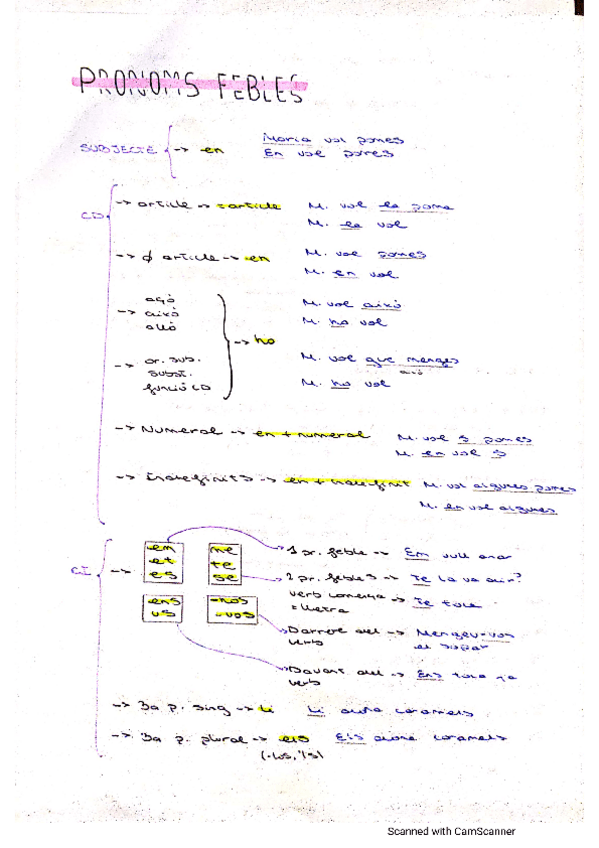 PRONOMS FEBLES
SUBJECTE -> en
Maria vol pomes
En vol pomes
CD
-> article -> article M. vol la poma
M. la vol
-> ∅ article -> en M. vol pomes
M. en vol
açò
-> això
allò
-> ho
M. vol això
M. ho vol
-> or. sub.
subst.
funció CD
M. vol que menges
això
M. ho vol
-> Numeral -> en + numeral M. vol 5 pomes
M. en vol 5
-> Indefinits -> en + indefinit M. vol algunes pomes
M. en vol algunes
CI ->
em
et
es
me
te
se
ens
us
-nos
-vos
1 pr. feble -> Em vull anar
2 pr. febles -> Te la va dir?
verb comença -> Te
Darrere del -> Mengeu-vos
verb el sopar
Davant del -> Ens toca ja
verb
-> 3a p. sing -> li Li dona caramels
-> 3a p. plural -> els Els dona caramels
(-los, 'ls)
Scanned with CamScanner